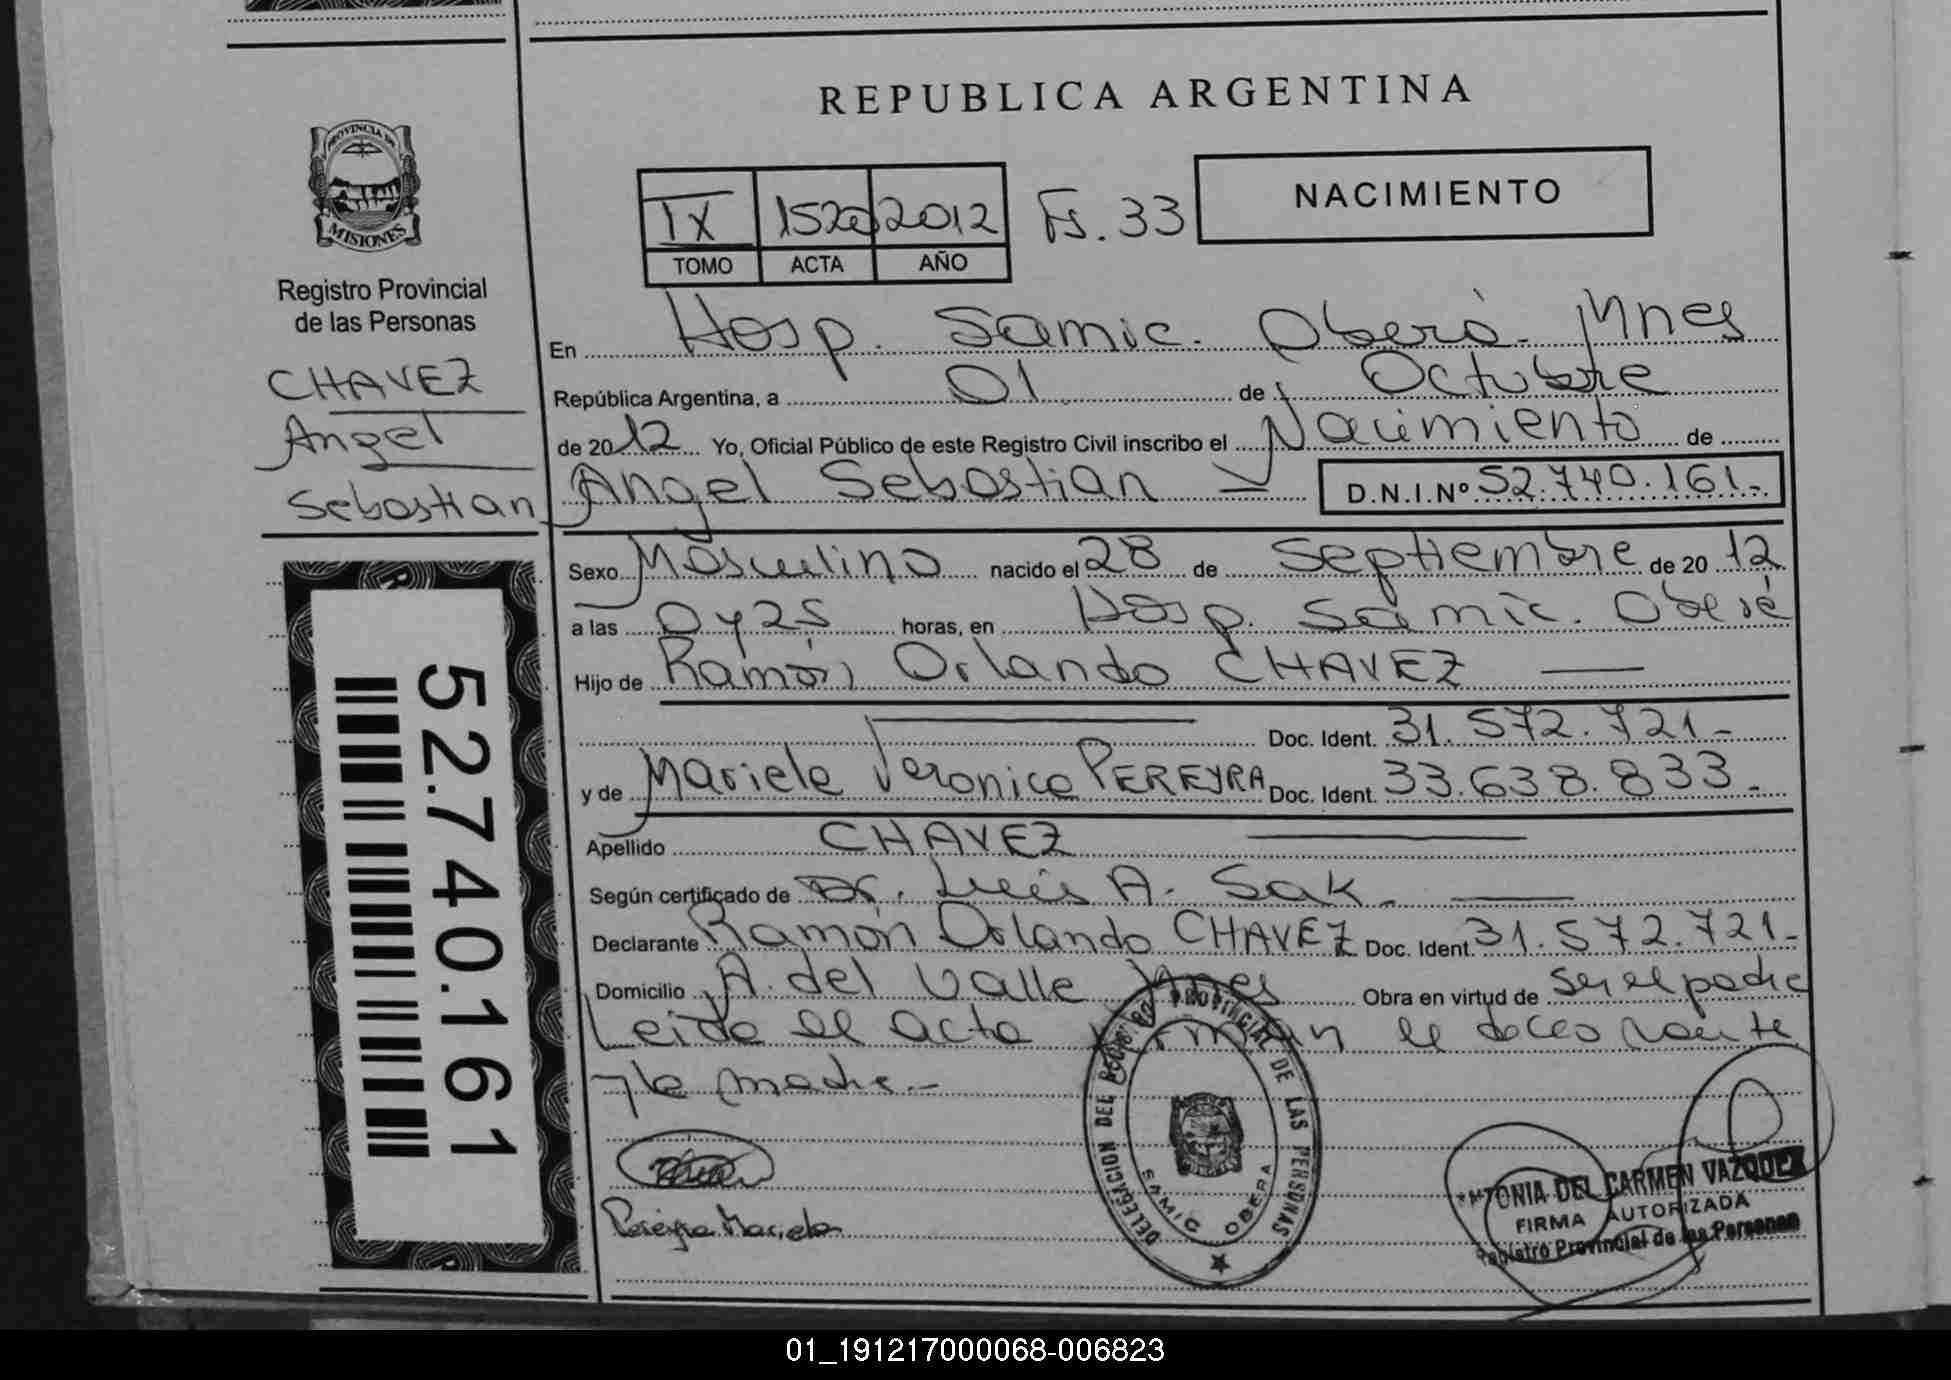 REPUBLICA ARGENTINA
PROVINCIA DE
MISIONES
Registro Provincial
de las Personas
CHAVEZ
Angel
Sebastian
52.740.161
IX 2012 Fs. 33
TOMO ACTA AÑO
NACIMIENTO
En Hosp. Samic. Oberá. Mnes
República Argentina, a 01 de Octubre
de 2012 Yo, Oficial Público de este Registro Civil inscribo el Nacimiento de
Angel Sebastian D.N.I.Nº 52.740.161.-
Sexo Masculino nacido el 28 de Septiembre de 2012
a las 0y25 horas, en Hosp. Samic. Oberá
Hijo de Ramón Orlando CHAVEZ
Doc. Ident. 31.572.721-
y de Mariela Veronica PEREYRA Doc. Ident. 33.638.833.-
Apellido CHAVEZ
Según certificado de Dr. Luis A. Sak.
Declarante Ramón Orlando CHAVEZ Doc. Ident. 31.572.721-
Domicilio A. del Valle Mnes Obra en virtud de ser el padre
Leida el acta firman el declarante
y la madre.-
Pereyra Mariela
DELEGACION DEL REGISTRO PROVINCIAL DE LAS PERSONAS
SAMIC OBERA
ANTONIA DEL CARMEN VAZQUEZ
FIRMA AUTORIZADA
Registro Provincial de las Personas
01_191217000068-006823